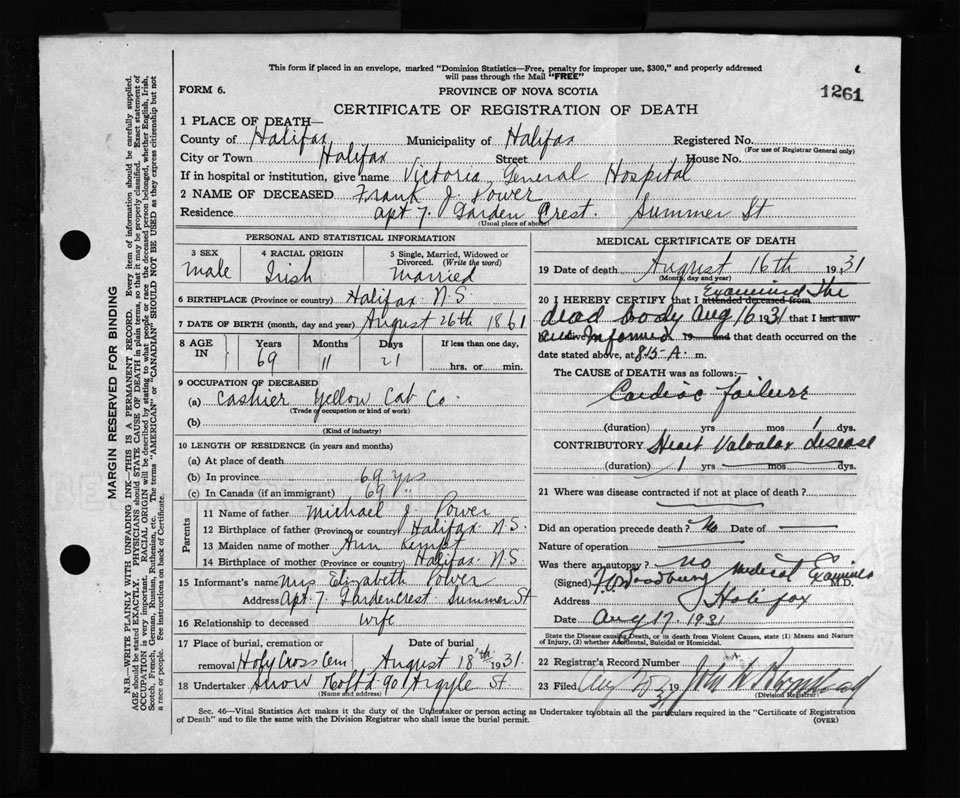 This form if placed in an envelope, marked "Dominion Statistics—Free, penalty for improper use, $300," and properly addressed
will pass through the Mail "FREE"
1261
FORM 6.
PROVINCE OF NOVA SCOTIA
CERTIFICATE OF REGISTRATION OF DEATH
1 PLACE OF DEATH—
County of Halifax Municipality of Halifax Registered No.
(For use of Registrar General only)
City or Town Halifax Street House No.
If in hospital or institution, give name Victoria General Hospital
2 NAME OF DECEASED Frank J. Power
Residence apt 7. Garden Crest. Summer St
(Usual place of abode)
PERSONAL AND STATISTICAL INFORMATION
3 SEX 4 RACIAL ORIGIN 5 Single, Married, Widowed or
Divorced. (Write the word)
male Irish Married
6 BIRTHPLACE (Province or country) Halifax N.S.
7 DATE OF BIRTH (month, day and year) August 26th 1861
8 AGE IN Years Months Days If less than one day,
69 11 21 hrs. or min.
9 OCCUPATION OF DECEASED
(a) Cashier Yellow Cab Co.
(Trade or occupation or kind of work)
(b)
(Kind of industry)
10 LENGTH OF RESIDENCE (in years and months)
(a) At place of death
(b) In province 69 yrs
(c) In Canada (if an immigrant) 69 "
Parents
11 Name of father Michael J Power
12 Birthplace of father (Province or country) Halifax N.S.
13 Maiden name of mother Ann Kempt
14 Birthplace of mother (Province or country) Halifax N.S.
15 Informant's name Mrs Elizabeth Power
Address Apt. 7. Gardencrest Summer St
16 Relationship to deceased Wife
17 Place of burial, cremation or Date of burial
removal Holy Cross Cem August 18th 1931.
18 Undertaker Snow Co Ltd 90 Argyle St.
(Name and address)
MEDICAL CERTIFICATE OF DEATH
19 Date of death August 16th 1931
(Month, day and year)
20 I HEREBY CERTIFY that I attended deceased from Examined the
dead body Aug 16 1931 that I last saw
Informed 19 and that death occurred on the
date stated above, at 8.15 A. m.
The CAUSE of DEATH was as follows:—
Cardiac failure
(duration) yrs mos 1 dys.
CONTRIBUTORY Heart Valvular disease
(duration) 1 yrs mos dys.
21 Where was disease contracted if not at place of death?
Did an operation precede death? No Date of
Nature of operation
Was there an autopsy? no
(Signed) Woodbury Medical Examiner M.D.
Address Halifax
Date Aug 17. 1931
State the Disease causing Death, or in death from Violent Causes, state (1) Means and Nature
of Injury, (2) whether Accidental, Suicidal or Homicidal.
22 Registrar's Record Number
23 Filed Aug 31 19 John
(Division Registrar)
Sec. 46—Vital Statistics Act makes it the duty of the Undertaker or person acting as Undertaker to obtain all the particulars required in the "Certificate of Registration
of Death" and to file the same with the Division Registrar who shall issue the burial permit.
(OVER)
MARGIN RESERVED FOR BINDING
N.B.—WRITE PLAINLY WITH UNFADING INK—THIS IS A PERMANENT RECORD. Every item of information should be carefully supplied.
AGE should be stated EXACTLY. PHYSICIANS should STATE CAUSE OF DEATH in plain terms, so that it may be properly classified. Exact statement of
OCCUPATION is very important. RACIAL ORIGIN will be described by stating to what people or race the deceased person belonged, whether English, Irish,
Scotch, French, German, Russian, Ruthenian, etc. The terms "AMERICAN" or "CANADIAN" SHOULD NOT BE USED as they express citizenship but not
a race or people. See instructions on back of Certificate.